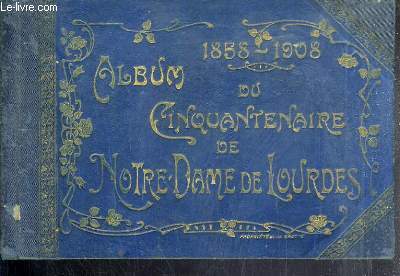 Le-livre.com
1858-1908
ALBUM
DU
CINQUANTENAIRE
DE
NOTRE-DAME DE LOURDES